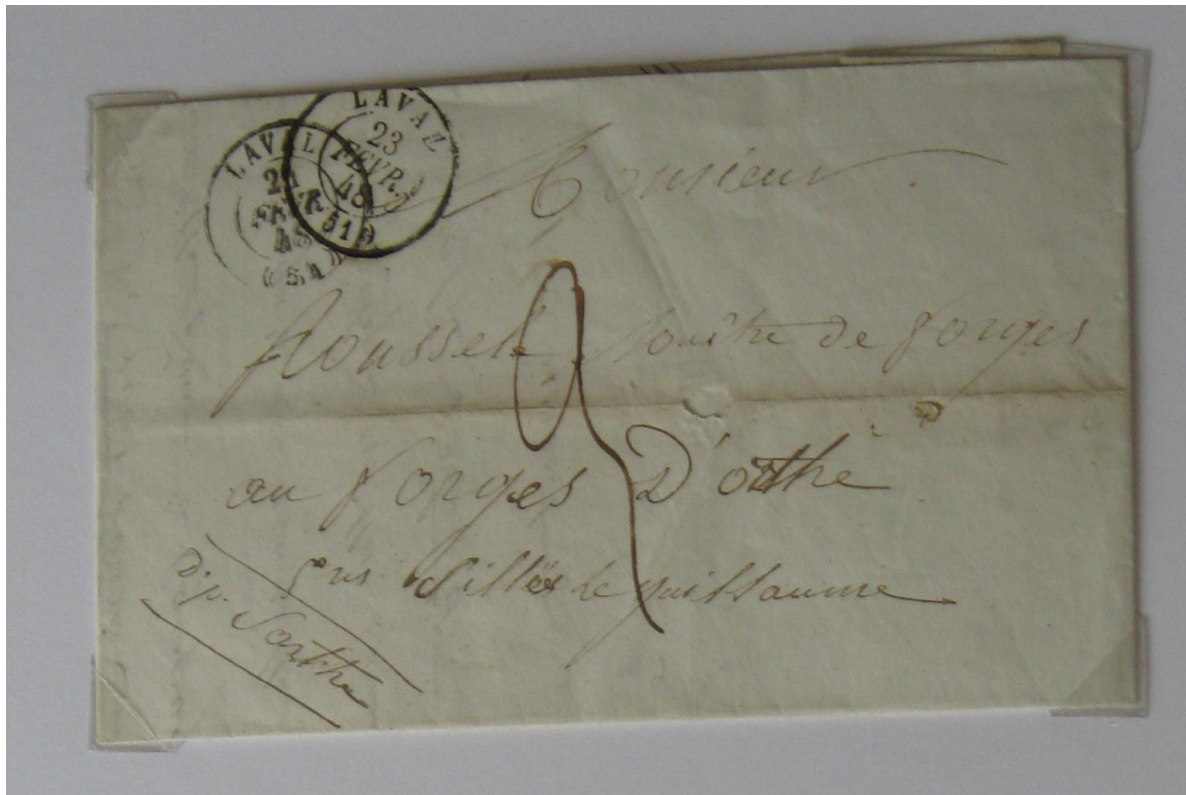 LAVAL
23
FEVR.
48
LAVAL
FEVR.
48
(51)
Monsieur
Roussel Maître de forges
au forges D'orthe
Sillé le guillaume
dép. Sarthe